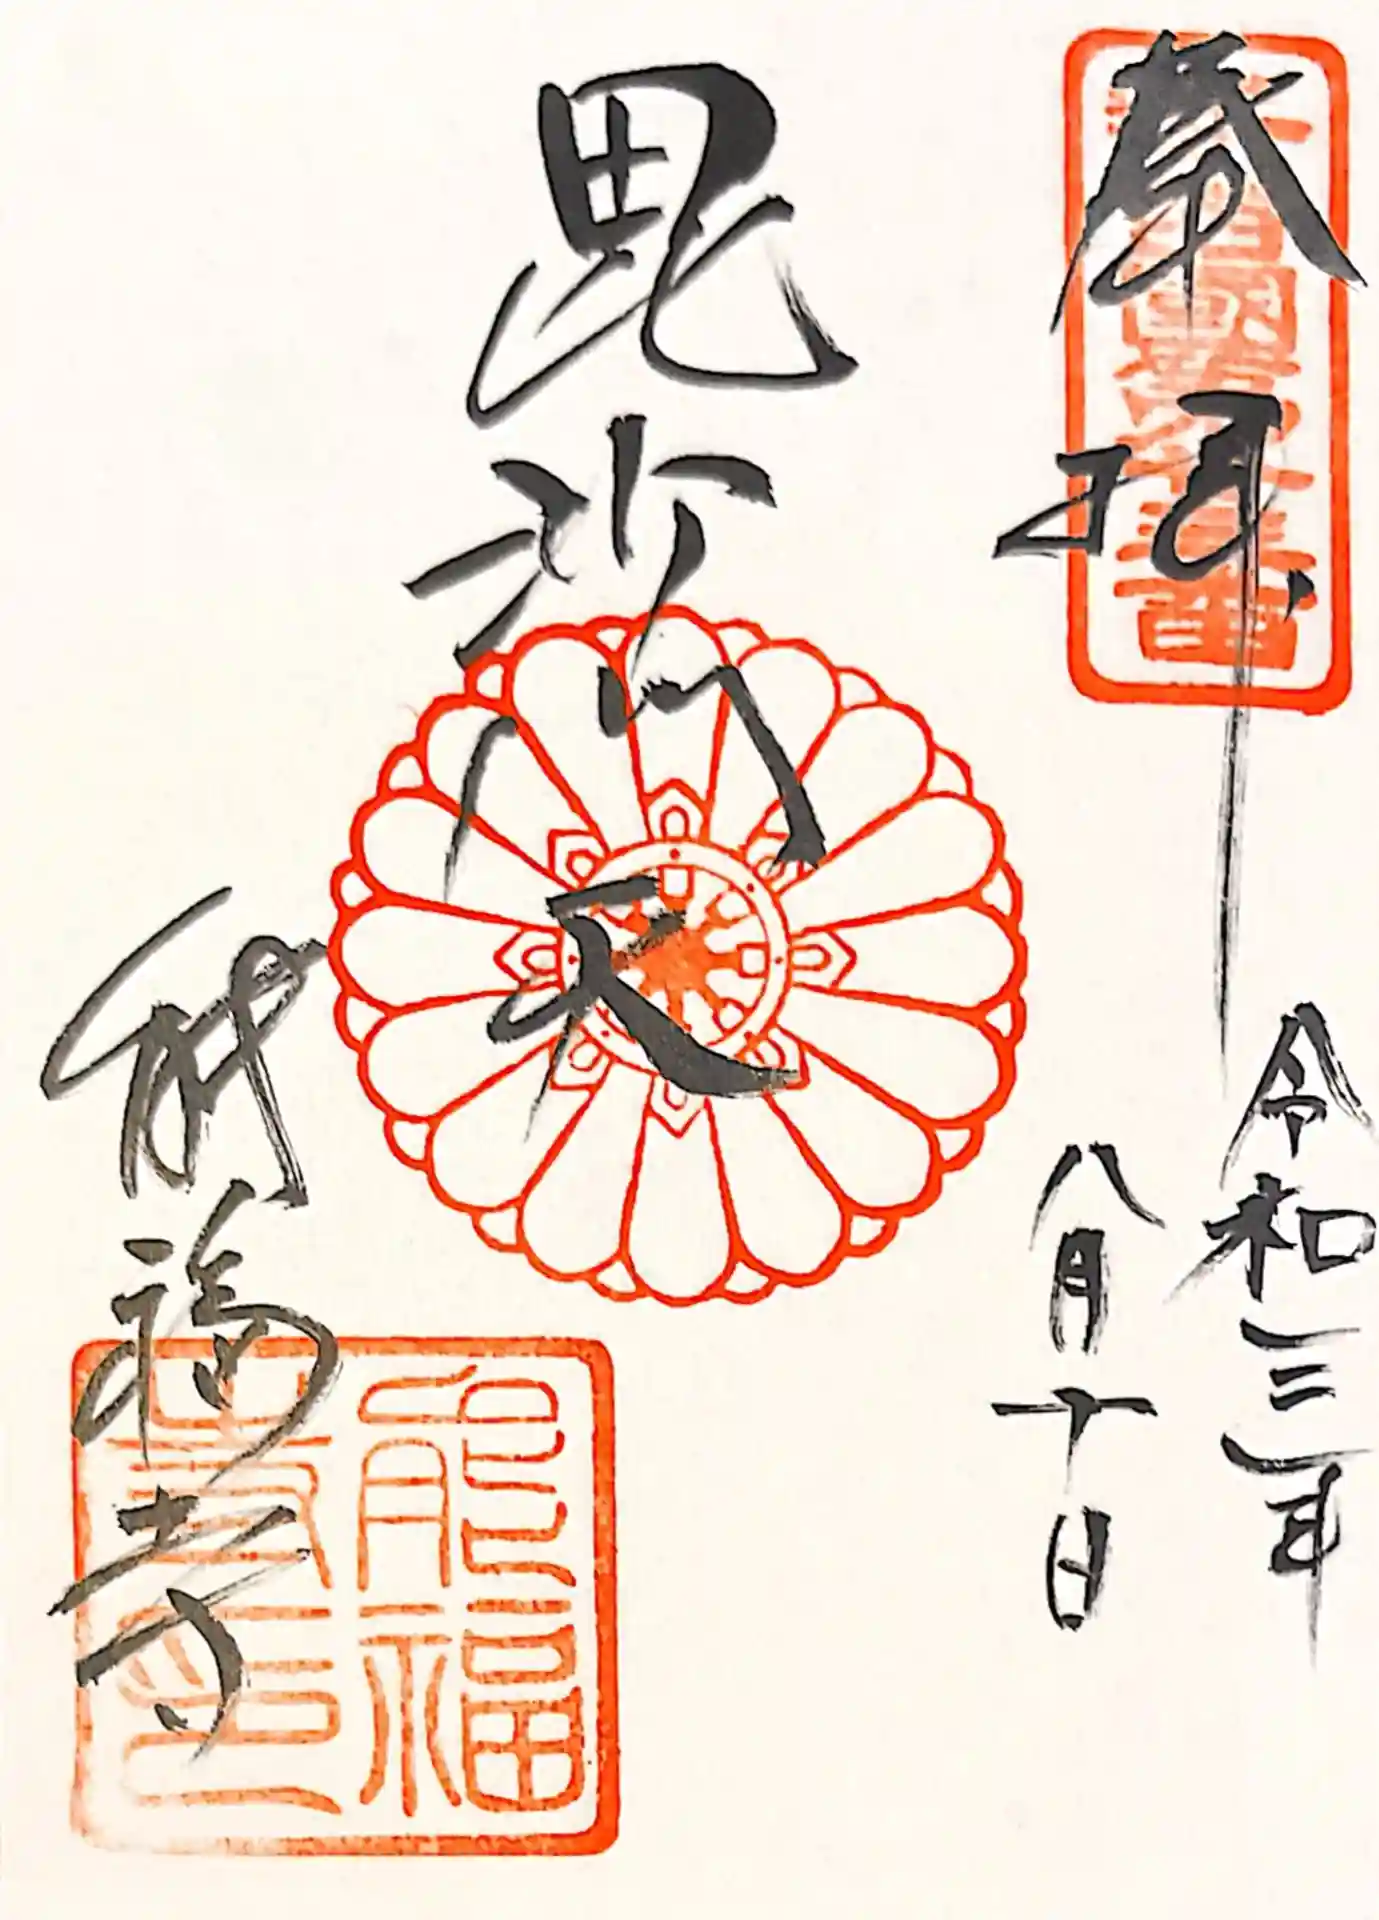 奉拝
令和三年
八月十日
毘沙門天
能福寺
能福
寺印